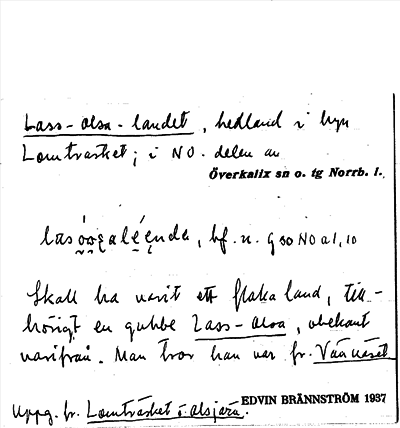 Lass-Olsa-landet, hedland i byn
Lomträsket; i NO. delen av
Överkalix sn o. tg Norrb. l.
bf. n. 9 so NO a 1, 10
Skall ha varit ett flaka land, till-
hörigt en gubbe Lass-Olsa, obekant
varifrån. Man tror han var fr. Väånäset
Uppg. fr. Lomträsket o. Alsjärv.
EDVIN BRÄNNSTRÖM 1937